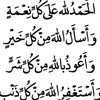 الْحَمْدُ لِلّٰهِ عَلَى كُلِّ نِعْمَةٍ
وَأَسْأَلُ اللهَ مِنْ كُلِّ خَيْرٍ
وَأَعُوذُ بِاللهِ مِنْ كُلِّ شَرٍّ
وَأَسْتَغْفِرُ اللهَ مِنْ كُلِّ ذَنْبٍ